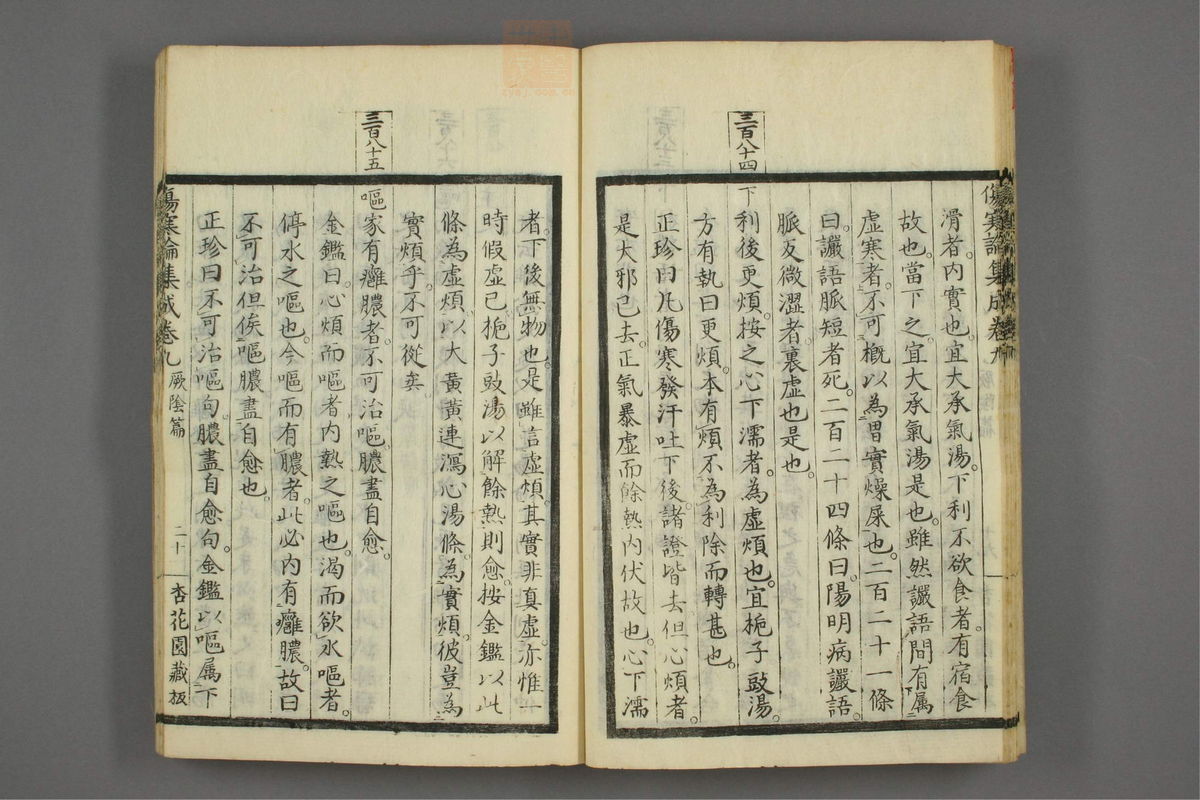 傷寒論集成卷九
滑者。內實也。宜大承氣湯。下利不欲食者。有宿食
故也。當下之。宜大承氣湯是也。雖然讝語間有属
虛寒者。不可概以為胃實燥屎也。二百二十一條
曰。讝語脈短者死。二百二十四條曰。陽明病讝語。
脈反微澀者。裏虛也是也。
三百八十四
下利後更煩。按之心下濡者。為虛煩也。宜梔子豉湯。
方有執曰。更煩。本有煩不為利除而轉甚也。
正珍曰。凡傷寒發汗吐下後。諸證皆去。但心煩者。
是大邪已去。正氣暴虛而餘熱內伏故也。心下濡
者。下後無物也。是雖言虛煩。其實非真虛。亦惟一
時假虛已。梔子豉湯以解餘熱則愈。按金鑑以此
條為虛煩。以大黃黃連瀉心湯條。為實煩。彼豈為
實煩乎。不可從矣。
三百八十五
嘔家有癰膿者。不可治嘔。膿盡自愈。
金鑑曰。心煩而嘔者。內熱之嘔也。渴而欲水嘔者。
停水之嘔也。今嘔而有膿者。此必內有癰膿。故曰
不可治。但俟嘔膿盡自愈也。
正珍曰。不可治嘔句。膿盡自愈句。金鑑以嘔属下
傷寒論集成卷九
厥陰篇
二十
杏花園藏板